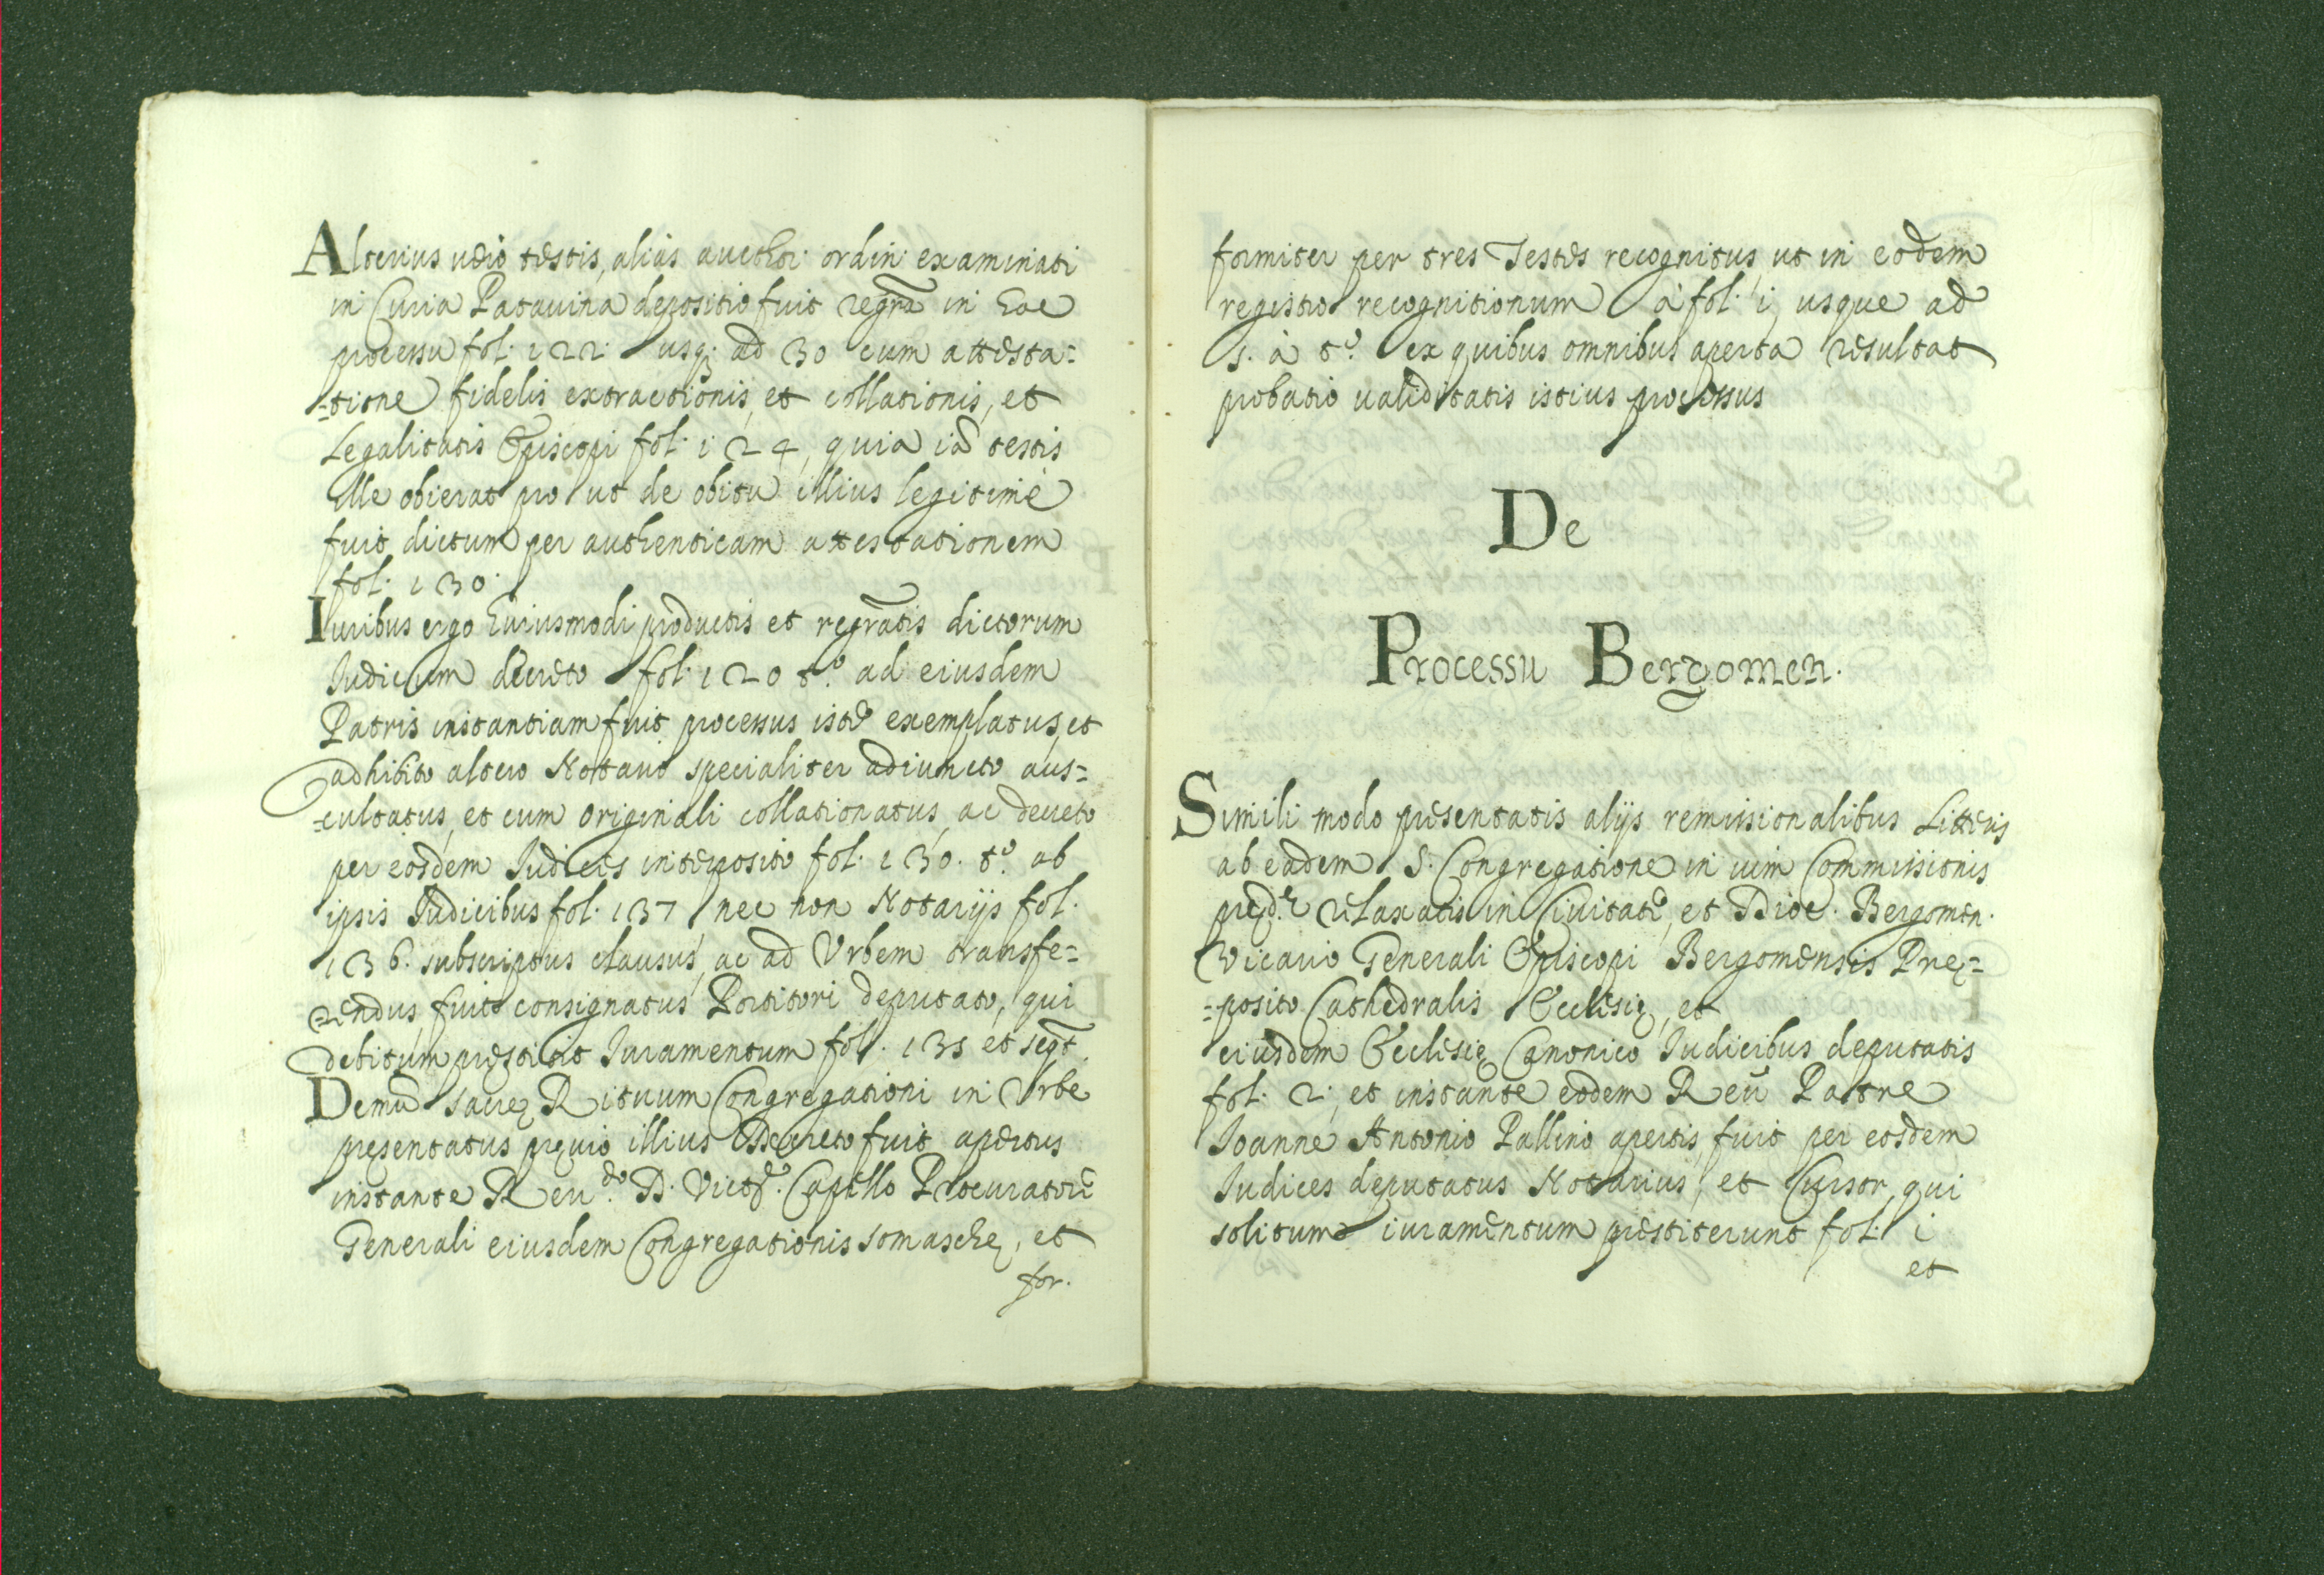 Alterius uerò testis, aliàs aucthor. ordin. examinati
in Curia Patauina depositio fuit regr̃ta in hoc
processu fol. 122. usq; ad 30 cum attesta=
=tione fidelis extractionis, et collationis, et
Legalitatis Episcopi fol. 124, quia iã testis
ille obierat pro ut de obitu illius legitimè
fuit dictum per authenticam attestationem
fol. 130.
Iuribus ergo huiusmodi productis et regr̃atis dictorum
Iudicum decreto fol. 120 t.º ad eiusdem
Patris instantiam fuit processus iste exemplatus, et
adhibito altero Notario specialiter adiuncto aus=
=cultatus, et cum originali collationatus, ac decreto
per eosdem Iudices interposito fol. 130. t.º ab
ipsis Iudicibus fol. 137 nec non Notarijs fol.
136. subscriptus clausus, ac ad Vrbem transfe=
=rendus, fuit consignatus Portitori deputato, qui
debitum prestitit Iuramentum fol. 135 et seqt.
Demũ sacrę Rituum Congregationi in Vrbe
pręsentatus pręuio illius Decreto fuit apertus
instante Reu.do D. Capello Procuratore
Generali eiusdem Congregationis somaschę, et
for.
formiter per tres Testes recognitus ut in eodem
registro recognitionum à fol. i, usque ad
5. à t.º ex quibus omnibus aperta resultat
probatio ualiditatis istius processus
De
Processu Bergomen.
Simili modo presentatis alijs remissionalibus Litteris
ab eadem S. Congregatione in uim Commissionis
pręd.ę relaxatis in Ciuitate, et Dioc. Bergomen.
Vicario Generali Episcopi Bergomensis Prę=
=posito Cathedralis Ecclesię, et
eiusdem Ecclesię Canonico Iudicibus deputatis
fol. 2; et instante eodem Reũ Patre
Ioanne Antonio Pallino apertis, fuit per eosdem
Iudices deputatus Notarius, et Cursor, qui
solitum iuramentum prestiterunt fol. i
et